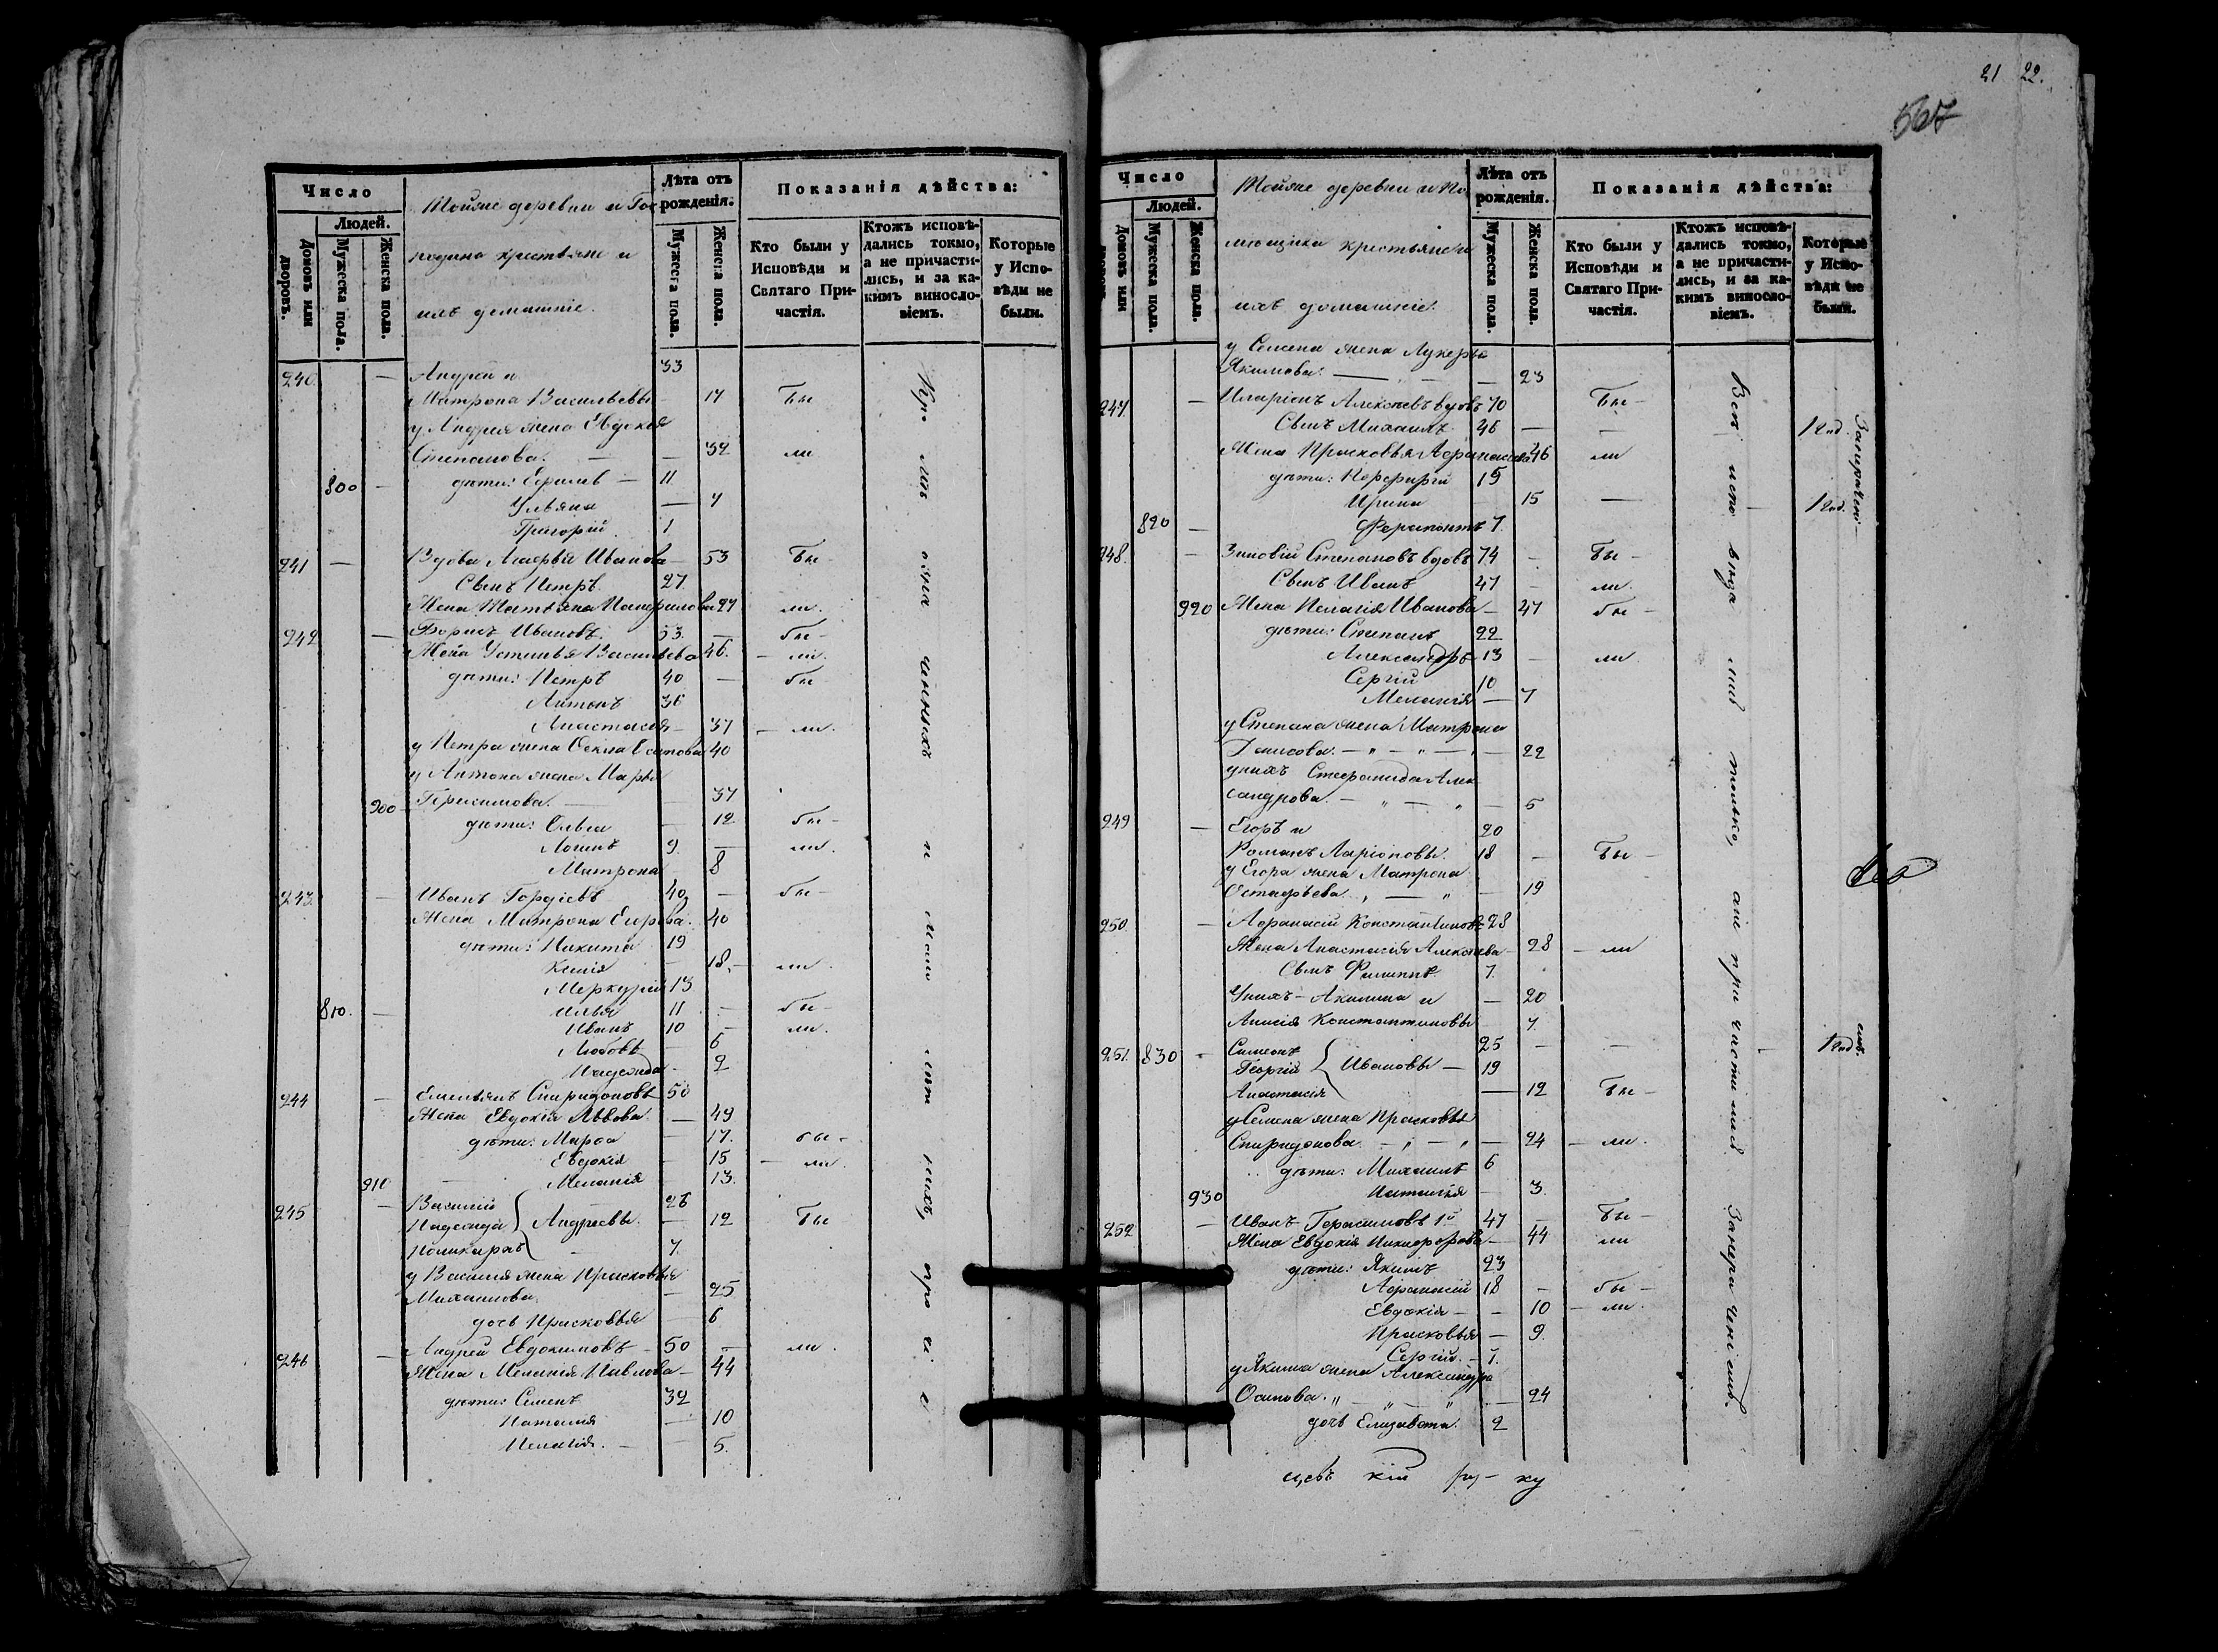 Число
Людей.
Домовъ или дворовъ.
Мужеска пола.
Женска пола.
Тойже деревни и Гос
подина крестьяне и
ихъ домашніе.
Лѣта отъ рожденія.
Мужеска пола.
Женска пола.
Показанія дѣйства:
Кто были у Исповѣди и Святаго Причастія.
Ктожъ исповѣдались токмо, а не причастились, и за какимъ винословіемъ.
Которые у Исповѣди не были.
240. — Андрей и 33
Матрона Васильевы — 17 Бы
у Андрея жена Евдокія
Степанова. — — 32 ли
800 — дѣти: Ефимъ — 11
Ульяна — 7
Григорій 1
241 — Вдова Марѳа Иванова — 53 Бы
Сынъ Петръ 27
Жена Татьяна 27 ли.
242 — Борисъ Ивановъ. 53. — бы
Жена Устинья Васильева 46. — ли.
дѣти: Петръ 40 — бы
Антонъ 36
Анастасія — 37 — ли.
у Петра жена Ѳекла Осипова 40
у Антона жена Марья
900 — Герасимова. — 37
дѣти: Ольга — 12 бы —
Логинъ 9 — ли.
Матрона 8
243. — Иванъ Гордіевъ 40 — бы —
Жена Матрона Егорова. 40
дѣти: Никита 19
Ксенія — 18. — ли.
Меркурій 13
810. — Илья 11 — бы —
Иванъ 10 — ли.
Любовь — 6
Надежда — 2
244 — Емельянъ Спиридоновъ 50
Жена Евдокія Львова — 49
дѣти: Марѳа — 17. бы —
Евдокія — 15 — ли.
910 — Меланія — 13.
245 — Василій 26
Надежда } Андреевы. — 12 Бы
Поликарпъ 7.
у Василія жена Прасковья
Михаилова — 25
дочь Прасковья — 6
246 — Андрей Евдокимовъ — 50 — ли.
Жена Меланія Павлова — 44
дѣти: Семенъ 32
Наталія — 10
Пелагія. — 5.
21 22.
567
Число
Людей.
Домовъ или дворовъ.
Мужеска пола.
Женска пола.
Тойже деревни и По
мѣщика крестьяне и
ихъ домашніе.
Лѣта отъ рожденія.
Мужеска пола.
Женска пола.
Показанія дѣйства:
Кто были у Исповѣди и Святаго Причастія.
Ктожъ исповѣдались токмо, а не причастились, и за какимъ винословіемъ.
Которые у Исповѣди не были.
у Семена жена Лукерья
Якимова. — — 23
247. — Иларіонъ Алексѣевъ вдовъ 70 Бы —
Сынъ Михаилъ 46 —
Жена Прасковья Аѳанасьева 46 ли
дѣти: Порфирій 19
Ирина 15 —
820 — Ферапонтъ 7.
248. — Зиновій Степановъ вдовъ 74 — Бы —
Сынъ Иванъ 47 — ли
920 Жена Пелагія Иванова — 47 бы —
дѣти: Степанъ 22
Александръ 13 — ли
Сергій 10
Меланія — 7
у Степана жена Матрона
Данилова. — " — " — 22
у нихъ Стефанида Алек
сандрова. — " — " — 5
249 — Егоръ и 20
Романъ Ларіоновы. 18 — Бы —
у Егора жена Матрона
Остафьева. , — " — 19
250 — Аѳанасій Константиновъ 28
Жена Анастасія Алексѣева — 28 — ли
Сынъ Филиппъ 7.
У нихъ — Акилина и — 20
Анисія Константиновы 7.
251. 830 — Симеонъ 25 —
Георгій } Ивановы — 19
Анастасія — 12 Бы —
у Семена жена Прасковья
Спиридонова. — " — " — 24 — ли.
дѣти: Михаилъ 6
930 Наталія — 3.
252 — Иванъ Герасимовъ 1й 47 — Бы —
Жена Евдокія Никифорова — 44 ли
дѣти: Якимъ 23
Аѳанасій 18 — бы —
Евдокія — — 10 — ли.
Прасковья — 9.
Сергій. — 1.
у Якима жена Александра
Осипова. " — " — " — 24
дочь Елизавета. 2